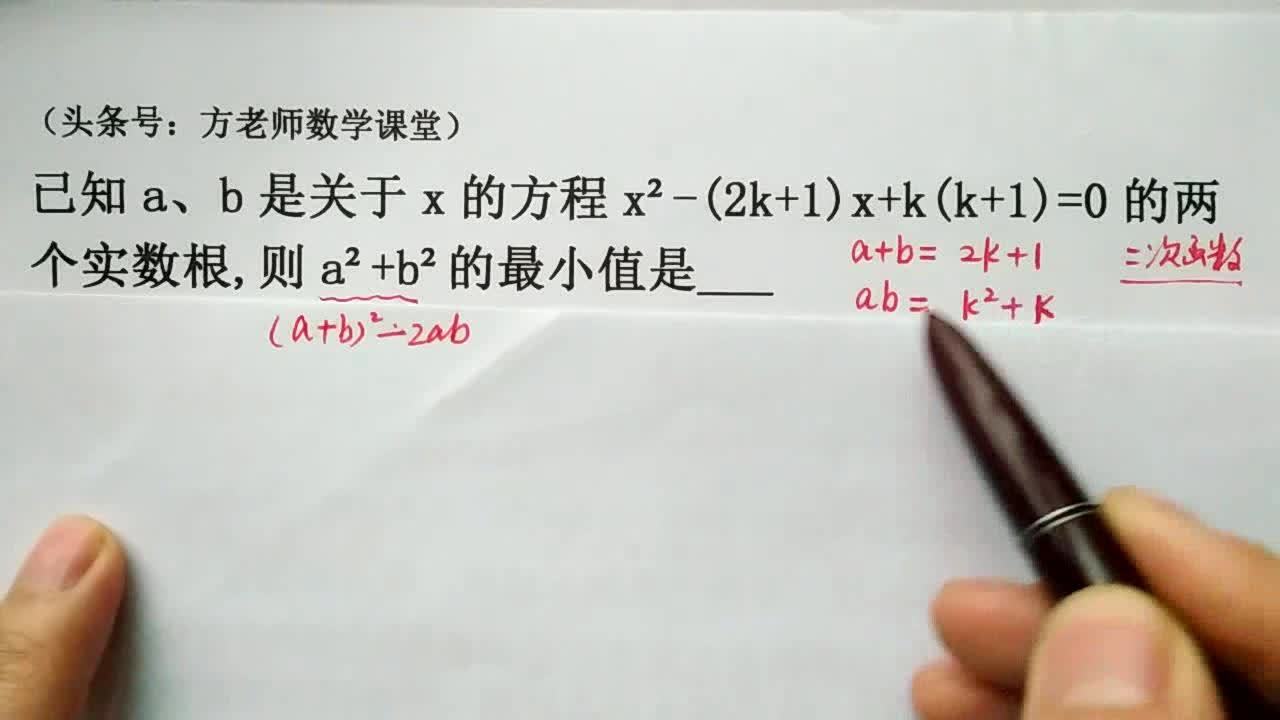 （头条号：方老师数学课堂）
已知 a、b 是关于 x 的方程 x²-(2k+1)x+k(k+1)=0 的两
个实数根,则 a²+b² 的最小值是___
a+b= 2k+1
二次函数
ab= k²+k
(a+b)²-2ab